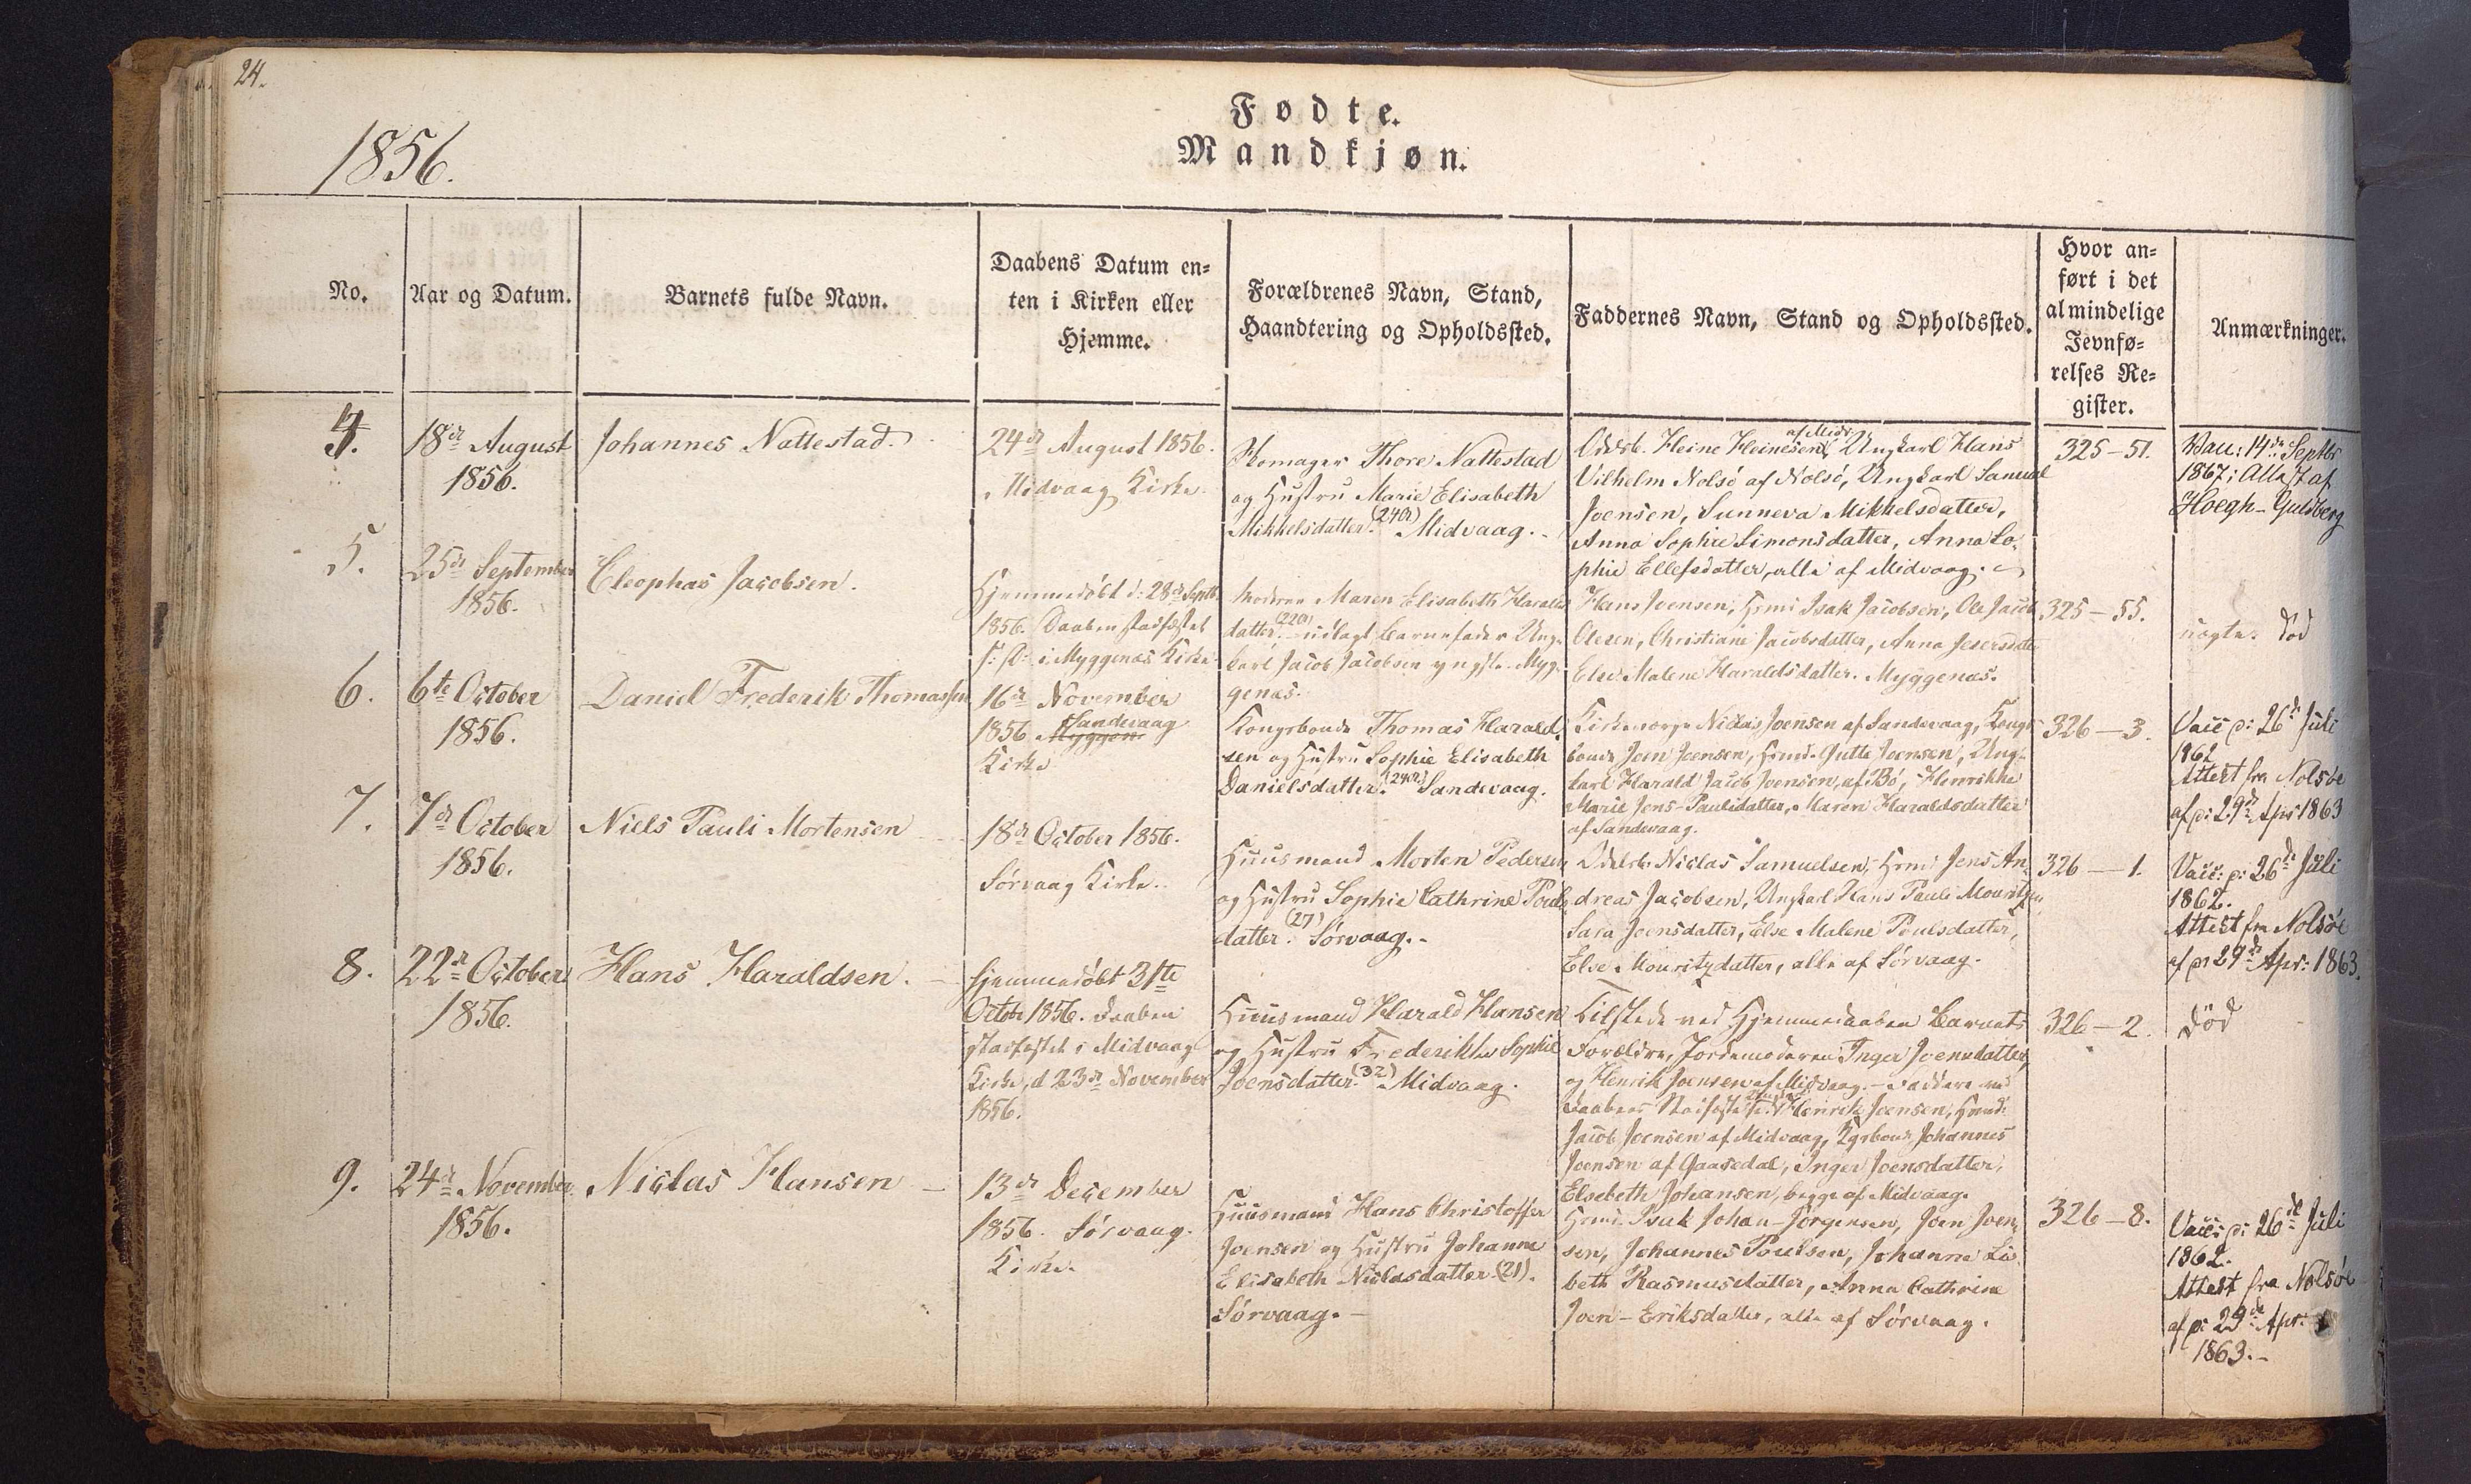 24.
1856.
Fødte.
Mandkjøn.
No.
Aar og Datum.
Barnets fulde Navn.
Daabens Datum en-
ten i Kirken eller
Hjemme.
Forældrenes Navn, Stand,
Haandtering og Opholdssted.
Faddernes Navn, Stand og Opholdssted.
Hvor an-
ført i det
almindelige
Jevnfø-
relses Re-
gister.
Anmærkninger.
4.
18de August
1856.
Johannes Nattestad.
24de August 1856.
Midvaag Kirke.
Skomager Thore Nattestad
og Hustru Marie Elisabeth
Mikkelsdatter. (24 A) Midvaag.
Odelsb. Heine Heinesen af Midv., Ungkarl Hans
Vilhelm Nolsö af Nolsö, Ungkarl Samuel
Joensen, Sunneva Mikkelsdatter,
Anna Sophie Simonsdatter, Anna So-
phie Ellefsdatter, alle af Midvaag.
325-51.
Vacc: 14de Septbr
1867; Attest af
Hoegh-Guldberg
5.
25de September
1856.
Cleophas Jacobsen.
Hjemmedöbt d: 28de Septb.
1856. Daaben stadfæstet
i Myggenæs Kirke
Moderen Maren Elisabeth Haralds
datter. (22 A) udlagt Barnefader Ung-
karl Jacob Jacobsen yngste. Myg-
genæs.
Hans Joensen, Hmd. Isak Jacobsen, Ole Jacob
Olesen, Christiane Jacobsdatter, Anna Jesersdatter
Else Malene Haraldsdatter. Myggenæs.
325-55.
uægte. död
6.
6te October
1856.
Daniel Frederik Thomassen
16de November
1856 Sandevaag
Kirke
Kongsbonde Thomas Harald-
sen og Hustru Sophie Elisabeth
Danielsdatter. (24 A) Sandevaag.
Kirkeværge Niclas Joensen af Sandevaag, Kongs-
bonde Joen Joensen, Hmd. Gutte Joensen, Ung-
karl Harald Jacob Joensen, af Bö, Henrikke
Marie Jens-Paulidatter, Maren Haraldsdatter
af Sandevaag.
326-3.
Vacc d: 26de Juli
1862
Attest fra Nolsöe
af d: 29de Apr 1863
7.
7de October
1856.
Niels Pauli Mortensen
18de October 1856.
Sörvaag Kirke.
Huusmand Morten Pedersen
og Hustru Sophie Cathrine Pouls-
datter. (27) Sörvaag.
Odelsb. Niclas Samuelsen, Hmd. Jens An-
dreas Jacobsen, Ungkarl Hans Pauli Mouritzen
Sara Joensdatter, Else Malene Poulsdatter,
Else Mouritzdatter, alle af Sörvaag.
326-1.
Vacc: d: 26de Juli
1862.
Attest fra Nolsöe
af d: 29de Apr: 1863.
8.
22de October
1856.
Hans Haraldsen.
Hjemmedöbt 31te
Octobr 1856. Daaben
stadfæstet i Midvaag
Kirke, d 23de November
1856.
Huusmand Harald Hansen
og Hustru Frederikke Sophie
Joensdatter (32) Midvaag.
Tilstede ved Hjemmedaaben Barnets
Forældre, Jordemoderen Inger Joensdatter
og Henrik Joensen af Midvaag. - Faddere ved
Daabens Stadfæstelse: Henrik Joensen, Hmd.
Jacob Joensen af Midvaag, Kgsbonde Johannes
Joensen af Gaasedal, Inger Joensdatter,
Elsebeth Johansen, begge af Midvaag.
326-2.
död
9.
24de November
1856.
Niclas Hansen
13de December
1856. Sörvaag
Kirke.
Huusmand Hans Christoffer
Joensen og Hustru Johanne
Elisabeth Niclasdatter (21).
Sörvaag.
Hmd. Isak Johan-Jörgensen, Joen Joen-
sen, Johannes Poulsen, Johanne Lis-
beth Rasmusdatter, Anna Cathrine
Joen-Eriksdatter, alle af Sörvaag.
326-8.
Vacc: d: 26de Juli
1862.
Attest fra Nolsöe
af d: 29de Apr:
1863.-